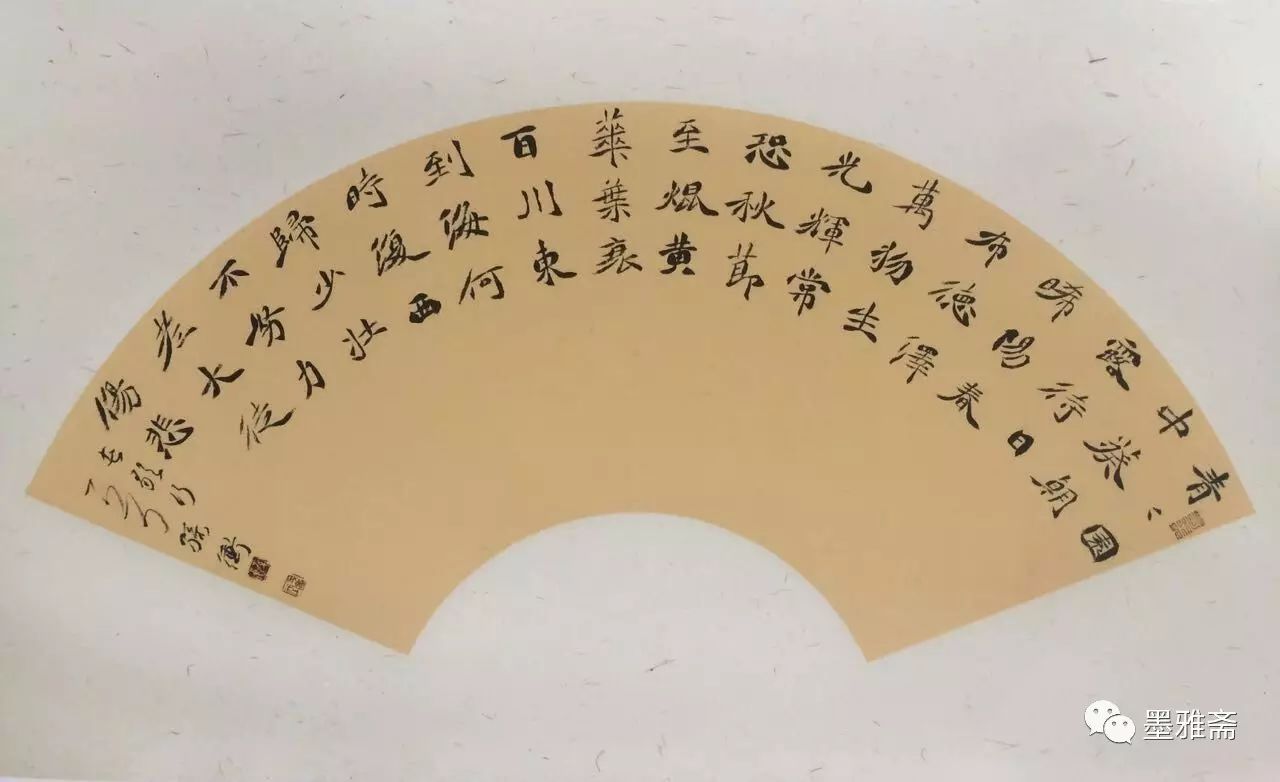 青〻園
中葵朝
露待日
晞陽春
布德澤
萬物生
光輝常
恐秋節
至焜黄
華葉衰
百川東
到海何
時復西
歸少壯
不努力
老大徒
傷悲
墨雅斋